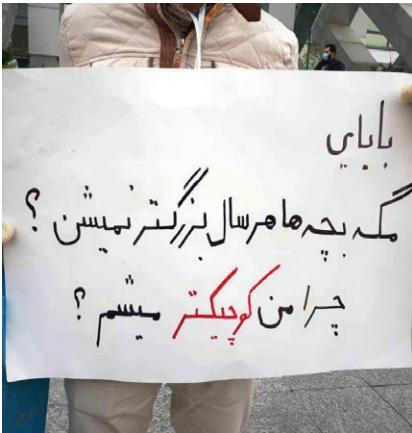 بابایی
مگه بچه ها هر سال بزرگتر نمیشن ؟
چرا من کوچیکتر میشم ؟